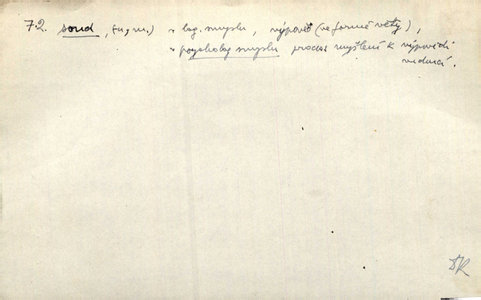 72. soud, (-u, m.) v log. smyslu, výpověď (ve formě věty),
v psycholog. smyslu proces myšlení k výpovědi
vedoucí.